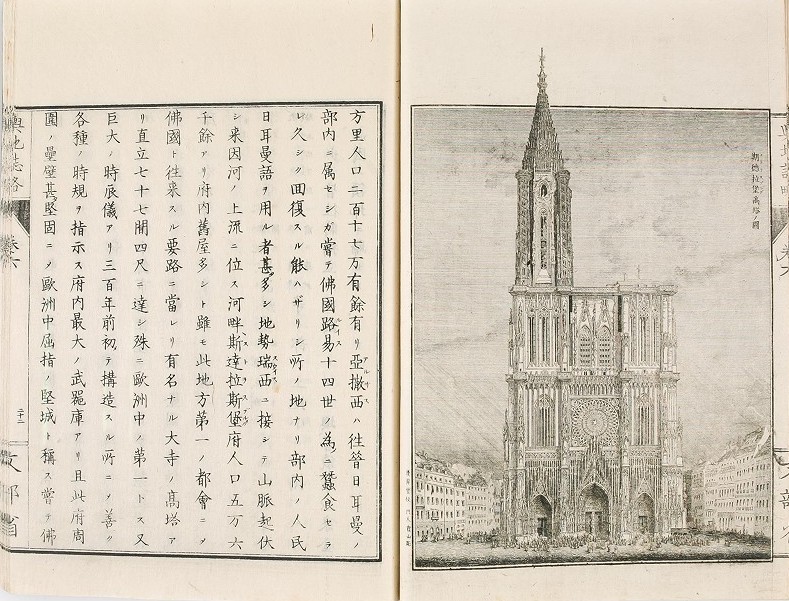 斯德拉堡高塔ノ圖
方里人口二百十七万有餘有リ亞撒西ハ往昔日耳曼ノ
アルサス
部内ニ属セシガ嘗テ佛國路易十四世ノ為ニ蠶食セラ
ルイス
レ久シク回復スル能ハザリシ所ノ地ナリ部内ノ人民
日耳曼語ヲ用ル者甚多シ地勢瑞西ニ接シテ山脈起伏
スイス
シ来因河ノ上流ニ位ス河畔斯達拉斯堡府人口五万六
千餘アリ府内舊屋多シト雖モ此地方第一ノ都會ニメ
佛國ト往来スル要路ニ當レリ有名ナル大寺ノ高塔ア
リ直立七十七間四尺ニ達シ殊ニ歐洲中ノ第一トス又
巨大ノ時辰儀アリ三百年前初テ構造スル所ニメ善ク
各種ノ時規ヲ指示ス府内最大ノ武器庫アリ且此府周
圍ノ壘壁甚堅固ニメ歐洲中屈指ノ堅城ト稱ス嘗テ佛
輿地誌略
卷六
文部省